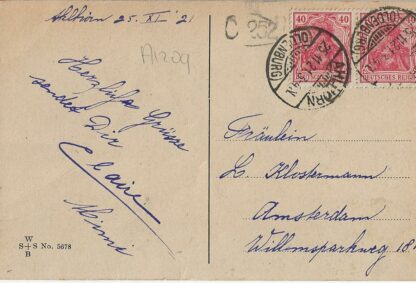 Ahlhorn 25. XI. 21
C 252
A1209
Herzliche Grüsse
sendet Dir
Claire
Mimi
W
S+S No. 5678
B
40
40
DEUTSCHES REICH
DEUTSCHES REICH
AHLHORN
(OLDENBURG)
25.11.21
(OLDENBURG)
Fräulein
L. Klostermann
Amsterdam
Willemsparkweg